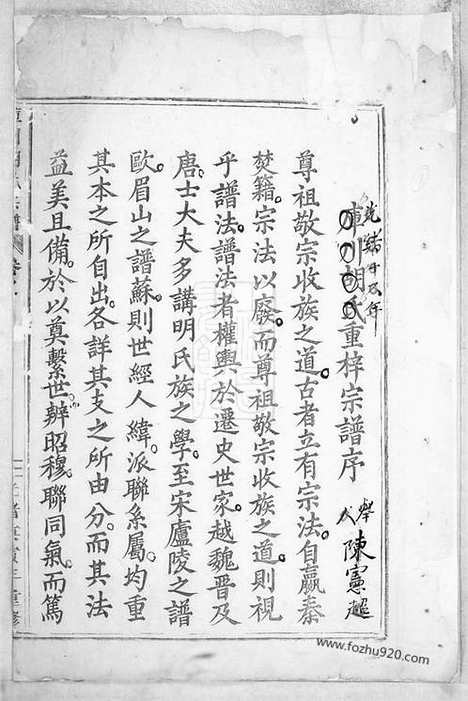 光緒廿四年
庫川胡氏重梓宗譜序
舉人陳憲超
尊祖敬宗收族之道古者立有宗法自嬴秦
焚籍宗法以廢而尊祖敬宗收族之道則視
乎譜法譜法者權輿於遷史世家越魏晉及
唐士大夫多講明氏族之學至宋廬陵之譜
歐眉山之譜蘇則世經人緯派聯系屬均重
其本之所自出各詳其支之所由分而其法
益美且備於以奠繫世辨昭穆聯同氣而篤
www.fozhu920.com